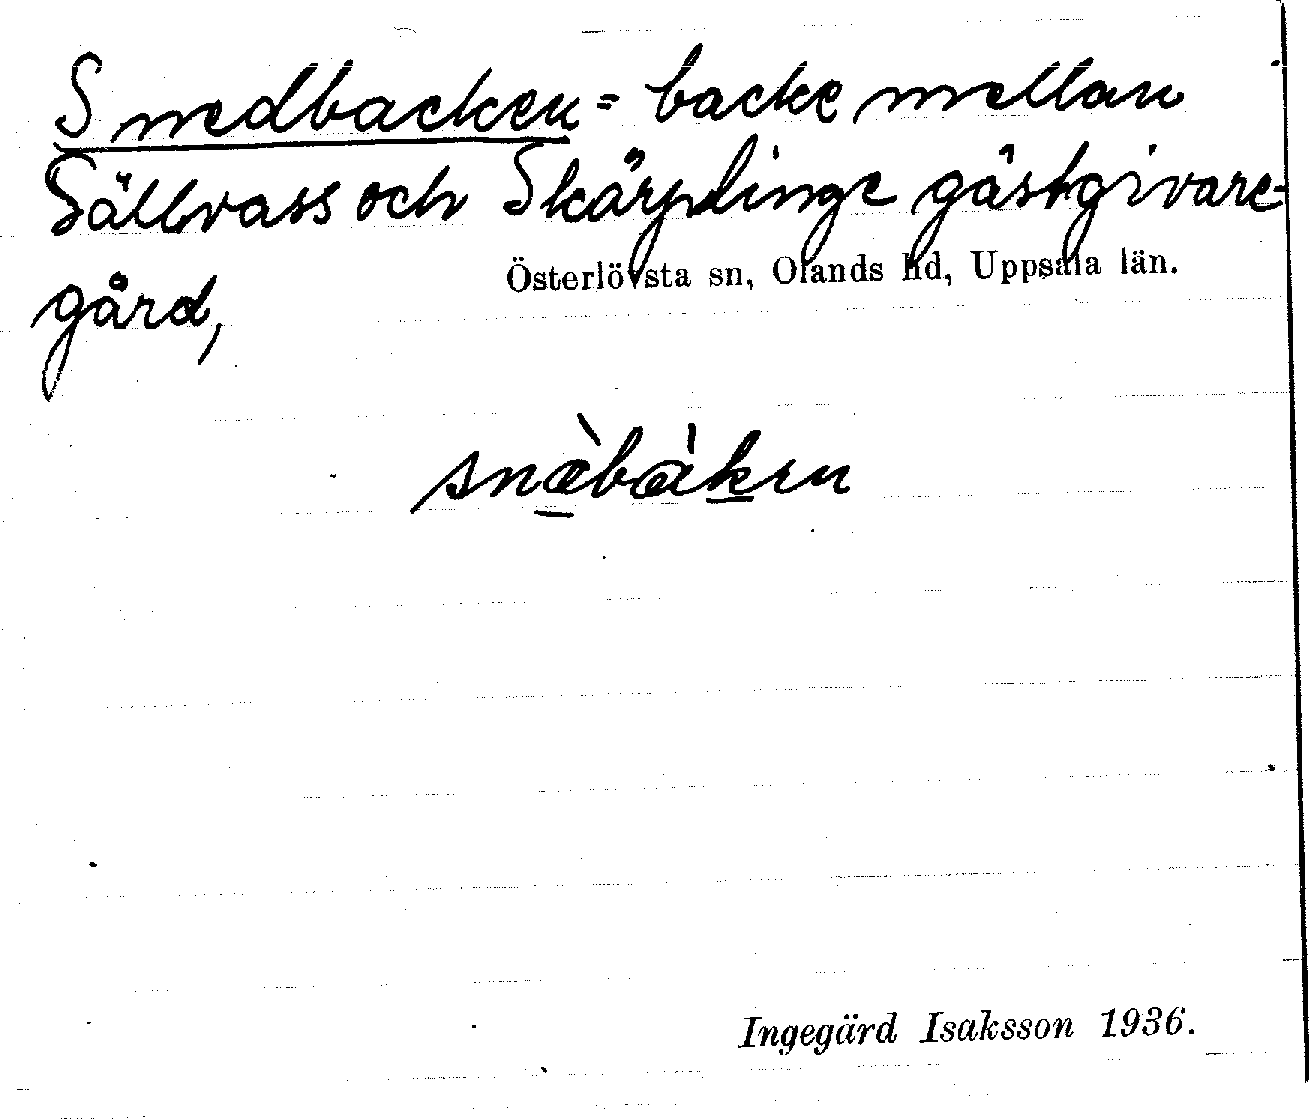 Smedbacken = backe mellan
Sällvass och Skärplinge gästgivare-
gård,
Österlövsta sn, Olands hd, Uppsala län.
snæ̀bàken
Ingegärd Isaksson 1936.